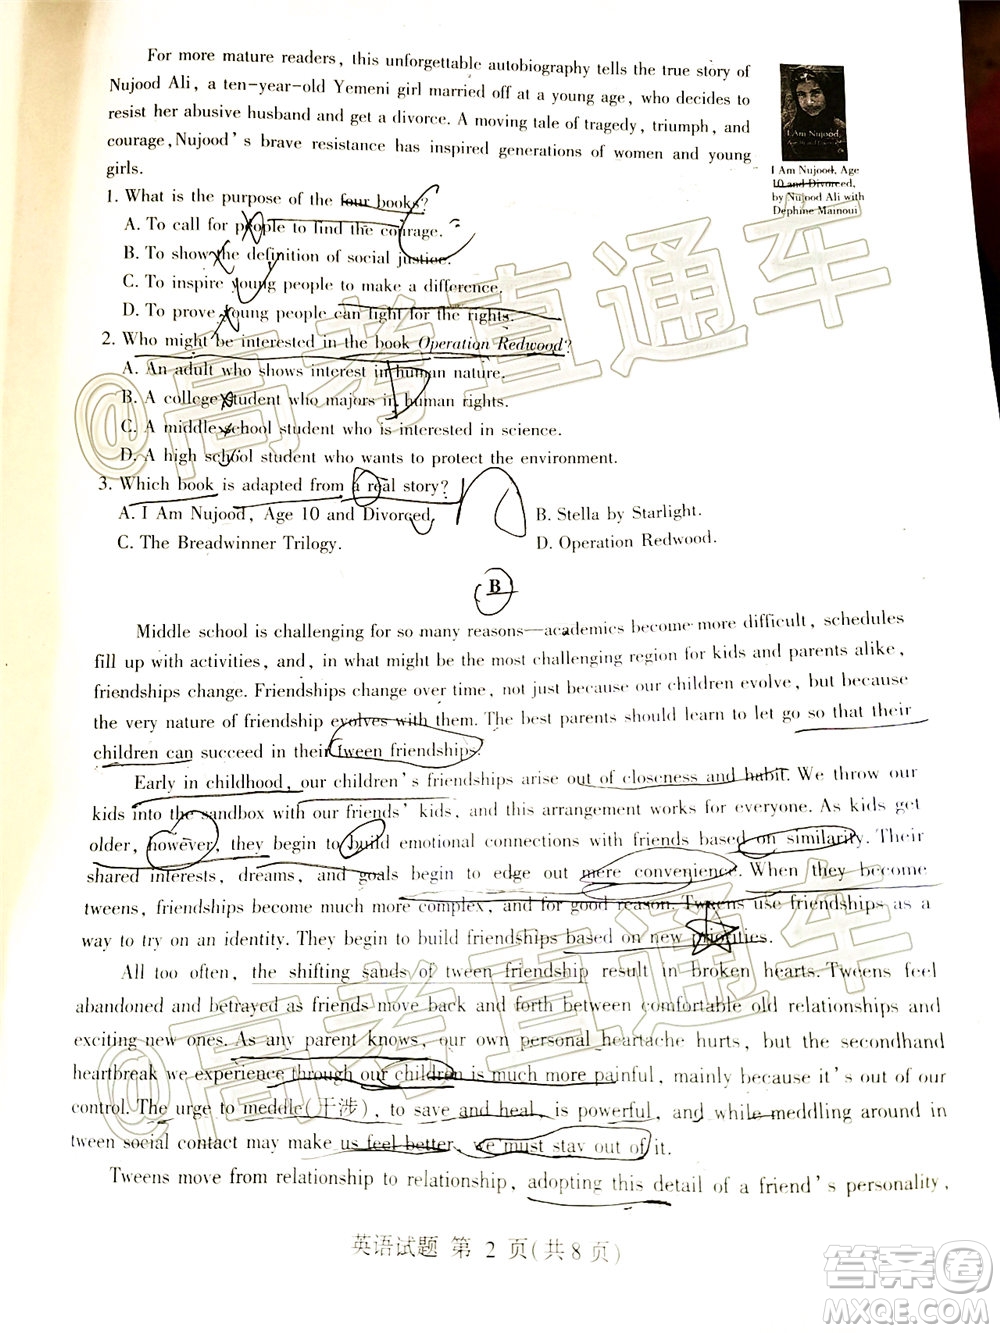 For more mature readers, this unforgettable autobiography tells the true story of
Nujood Ali, a ten-year-old Yemeni girl married off at a young age, who decides to
resist her abusive husband and get a divorce. A moving tale of tragedy, triumph, and
courage, Nujood's brave resistance has inspired generations of women and young
girls.
I Am Nujood,
I Am Nujood, Age
10 and Divorced,
by Nujood Ali with
Dephine Mainoui
1. What is the purpose of the four books?
A. To call for people to find the courage.
B. To show the definition of social justice.
C. To inspire young people to make a difference.
D. To prove young people can fight for the rights.
2. Who might be interested in the book Operation Redwood?
A. An adult who shows interest in human nature.
B. A college student who majors in human rights.
C. A middle school student who is interested in science.
D. A high school student who wants to protect the environment.
3. Which book is adapted from a real story?
A. I Am Nujood, Age 10 and Divorced.
B. Stella by Starlight.
C. The Breadwinner Trilogy.
D. Operation Redwood.
B
Middle school is challenging for so many reasons—academics become more difficult, schedules
fill up with activities, and, in what might be the most challenging region for kids and parents alike,
friendships change. Friendships change over time, not just because our children evolve, but because
the very nature of friendship evolves with them. The best parents should learn to let go so that their
children can succeed in their tween friendships.
Early in childhood, our children's friendships arise out of closeness and habit. We throw our
kids into the sandbox with our friends' kids, and this arrangement works for everyone. As kids get
older, however, they begin to build emotional connections with friends based on similarity. Their
shared interests, dreams, and goals begin to edge out mere convenience. When they become
tweens, friendships become much more complex, and for good reason. Tweens use friendships as a
way to try on an identity. They begin to build friendships based on new priorities.
All too often, the shifting sands of tween friendship result in broken hearts. Tweens feel
abandoned and betrayed as friends move back and forth between comfortable old relationships and
exciting new ones. As any parent knows, our own personal heartache hurts, but the secondhand
heartbreak we experience through our children is much more painful, mainly because it's out of our
control. The urge to meddle(干涉), to save and heal, is powerful, and while meddling around in
tween social contact may make us feel better, we must stay out of it.
Tweens move from relationship to relationship, adopting this detail of a friend's personality,
英语试题 第 2 页(共 8 页)
@高考直通车
@高考直通车
答案圈
MXQE.COM